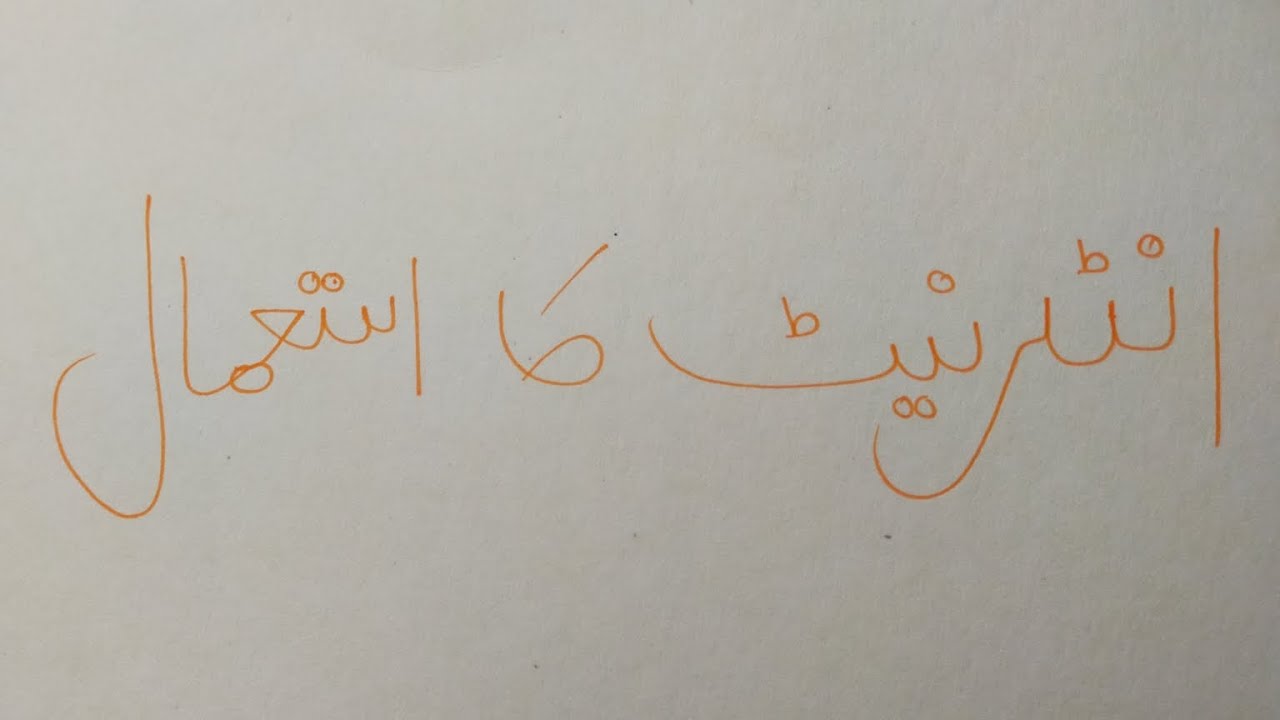 انٹرنیٹ کا استعمال